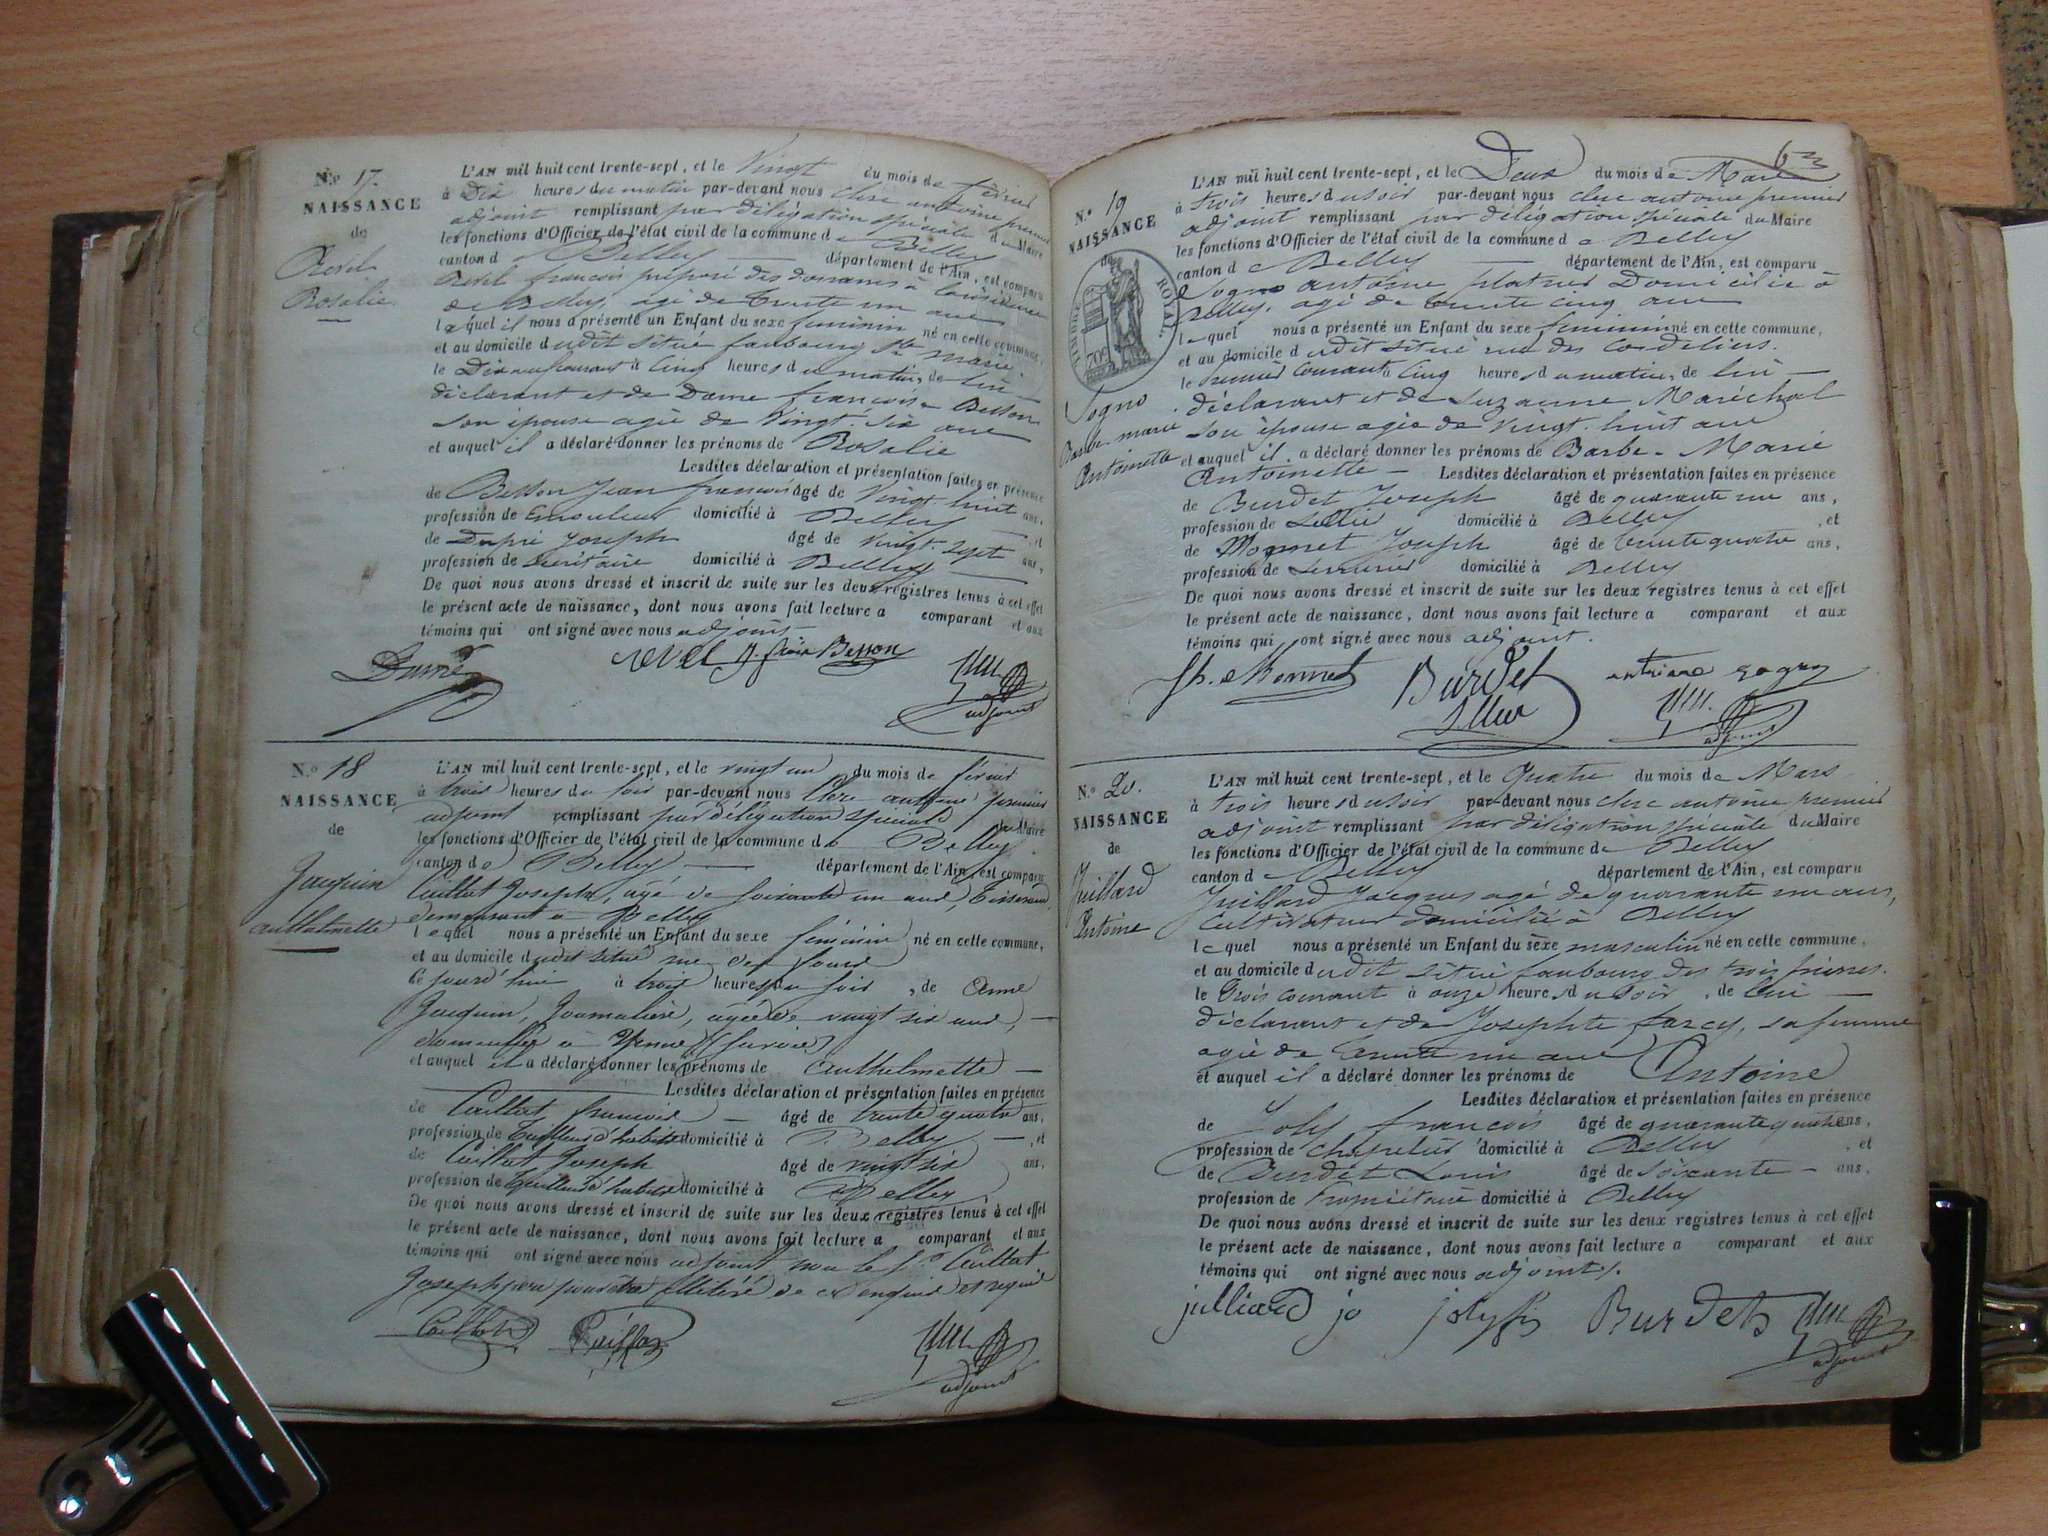 N.º 17.
NAISSANCE
de
Rosalie
L'AN mil huit cent trente-sept, et le Vingt du mois de février
à Dix heures du matin par-devant nous clerc antoine premier
adjoint remplissant par délégation spéciale du Maire
les fonctions d'Officier de l'état civil de la commune de Belley
canton de Belley département de l'Ain, est comparu
françois préposé des douanes à la résidence
de Belley, agé de trente un ans
lequel il nous a présenté un Enfant du sexe féminin né en cette commune,
et au domicile dudit situé faubourg Ste marie.
le Dix neuf courant à Cinq heures du matin, de lui
déclarant et de Dame françoise Besson
son épouse agée de Vingt-six ans
et auquel il a déclaré donner les prénoms de Rosalie
Lesdites déclaration et présentation faites en présence
de Besson Jean françois âgé de Vingt huit ans,
profession de domicilié à Belley et
de Dupré Joseph âgé de Vingt-sept ans,
profession de secrétaire domicilié à Belley
De quoi nous avons dressé et inscrit de suite sur les deux registres tenus à cet effet
le présent acte de naissance, dont nous avons fait lecture a comparant et aux
témoins qui ont signé avec nous adjoint
Dupré revel Besson
adjoint
N.º 18
NAISSANCE
de
Jacquin
anthelmette
L'AN mil huit cent trente-sept, et le vingt un du mois de février
à trois heures du soir par-devant nous Clerc antoine premier
adjoint remplissant par délégation spéciale du Maire
les fonctions d'Officier de l'état civil de la commune de Belley
canton de Belley département de l'Ain, est comparu
Caillat Joseph, agé de soixante un ans, Tisserand,
demeurant à Belley
lequel nous a présenté un Enfant du sexe féminin né en cette commune,
et au domicile dudit situé rue des fours
ce jourd'hui à trois heures du soir, de Anne
Jacquin, Journalière, agée de vingt six ans,
domiciliée à Yenne (Savoie)
et auquel il a déclaré donner les prénoms de anthelmette
Lesdites déclaration et présentation faites en présence
de Caillat françois âgé de trente quatre ans,
profession de Tailleur d'habits domicilié à Belley, et
de Caillat Joseph âgé de vingt six ans,
profession de tailleur d'habits domicilié à Belley
De quoi nous avons dressé et inscrit de suite sur les deux registres tenus à cet effet
le présent acte de naissance, dont nous avons fait lecture a comparant et aux
témoins qui ont signé avec nous adjoint non le Sr Caillat
Joseph pour être illitéré de ce enquis et requis
Caillat Caillat
adjoint
6
N.º 19
NAISSANCE
de
TIMBRE ROYAL.
70c
Sogno
Barbe-marie
Antoinette
L'AN mil huit cent trente-sept, et le Deux du mois de Mars
à trois heures du soir par-devant nous clerc antoine premier
adjoint remplissant par délégation spéciale du Maire
les fonctions d'Officier de l'état civil de la commune de Belley
canton de Belley département de l'Ain, est comparu
Sogno antoine platrier Domicilié à
Belley, agé de trente cinq ans
lequel nous a présenté un Enfant du sexe féminin né en cette commune,
et au domicile dudit situé rue des Cordeliers.
le Premier Courant à Cinq heures du matin, de lui
déclarant et de Suzanne Maréchal
son épouse agée de Vingt-huit ans
et auquel il a déclaré donner les prénoms de Barbe-Marie
Antoinette Lesdites déclaration et présentation faites en présence
de Burdet Joseph âgé de quarante un ans,
profession de Sellier domicilié à Belley, et
de Monnet Joseph âgé de trente quatre ans,
profession de Serrurier domicilié à Belley
De quoi nous avons dressé et inscrit de suite sur les deux registres tenus à cet effet
le présent acte de naissance, dont nous avons fait lecture a comparant et aux
témoins qui ont signé avec nous adjoint.
Jh. Monnet Burdet antoine sogno
Sellier
adjoint
N.º 20.
NAISSANCE
de
Juillard
Antoine
L'AN mil huit cent trente-sept, et le Quatre du mois de Mars
à trois heures du soir par-devant nous clerc antoine premier
adjoint remplissant par délégation spéciale du Maire
les fonctions d'Officier de l'état civil de la commune de Belley
canton de Belley département de l'Ain, est comparu
Juillard Jacques agé de quarante un ans,
Cultivateur domicilié à Belley
lequel nous a présenté un Enfant du sexe masculin né en cette commune,
et au domicile dudit situé faubourg des trois
le Trois courant à onze heures du soir, de lui
déclarant et de Josephte farcy, sa femme
agée de trente un ans
et auquel il a déclaré donner les prénoms de Antoine
Lesdites déclaration et présentation faites en présence
de Joly francois âgé de quarante quatre ans,
profession de chapelier domicilié à Belley, et
de Burdet Louis âgé de soixante ans,
profession de Propriétaire domicilié à Belley
De quoi nous avons dressé et inscrit de suite sur les deux registres tenus à cet effet
le présent acte de naissance, dont nous avons fait lecture a comparant et aux
témoins qui ont signé avec nous adjoint.
julliard jo joly fs Burdet
adjoint